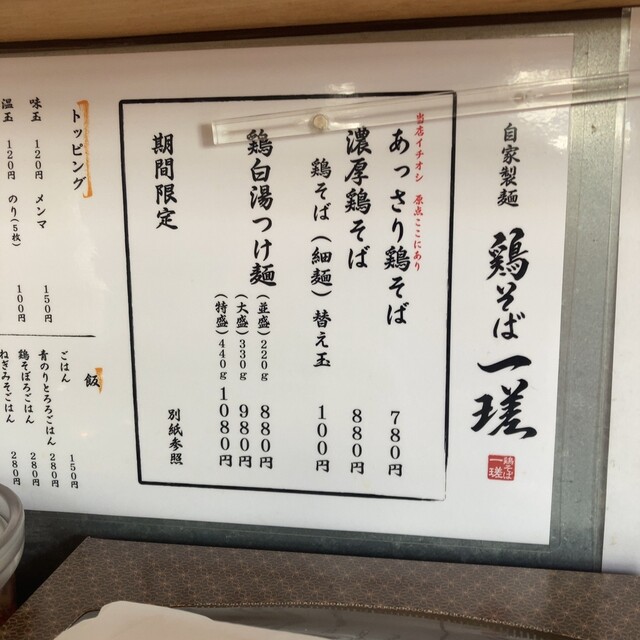 自家製麺
鶏そば 一瑳
鶏そば
一瑳
当店イチオシ 原点ここにあり
あっさり鶏そば 780円
濃厚鶏そば 880円
鶏そば(細麺)替え玉 100円
鶏白湯つけ麺 (並盛)220g 880円
(大盛)330g 980円
(特盛)440g 1080円
期間限定 別紙参照
トッピング
味玉 120円 メンマ 150円
温玉 120円 のり(5枚) 100円
飯
ごはん 150円
青のりとろろごはん 280円
鶏そぼろごはん 280円
ねぎみそごはん 280円